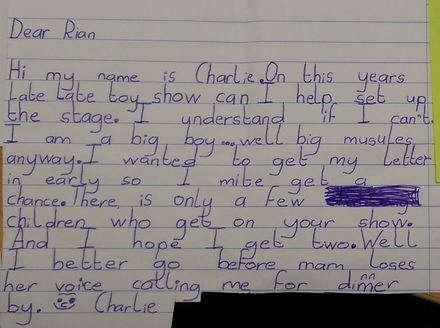 Dear Rian
Hi my name is Charlie. On this years
Late Late toy show can I help set up
the stage. I understand if I can't.
I am a big boy...well big musules
anyway. I wanted to get my letter
in early so I mite get a
chance. There is only a few
children who get on your show.
And I hope I get two. Well
I better go before mam loses
her voice calling me for dinner
by. Charlie